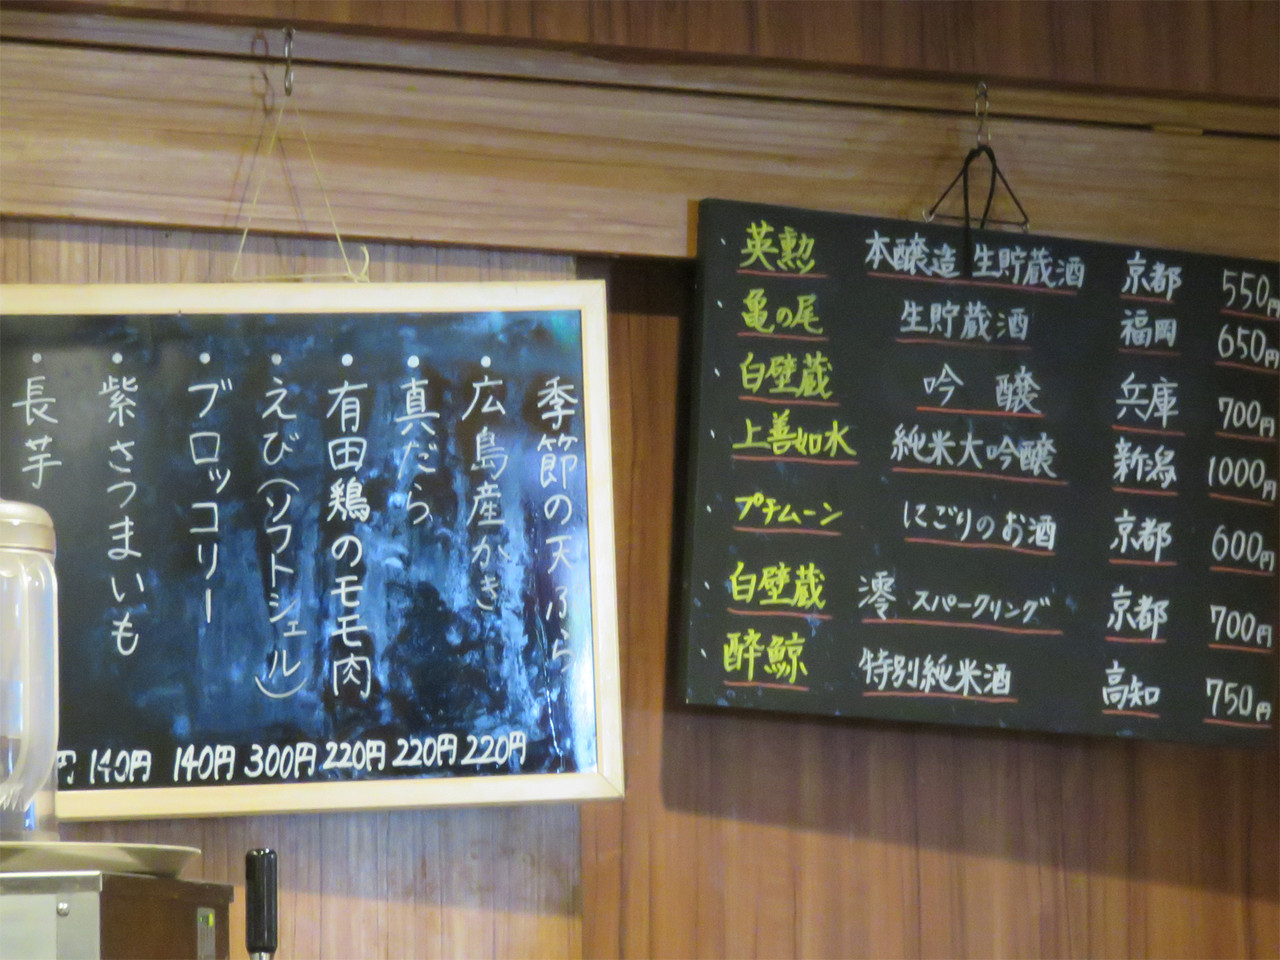 季節の天ぷら
・広島産かき 220円
・真だら 220円
・有田鶏のモモ肉 220円
・えび(ソフトシェル) 300円
・ブロッコリー 140円
・紫さつまいも 140円
・長芋 円
・英勲 本醸造 生貯蔵酒 京都 550円
・亀の尾 生貯蔵酒 福岡 650円
・白壁蔵 吟 醸 兵庫 700円
・上善如水 純米大吟醸 新潟 1000円
・プチムーン にごりのお酒 京都 600円
・白壁蔵 澪 スパークリング 京都 700円
・酔鯨 特別純米酒 高知 750円